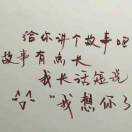 给你讲个故事吧
故事有点长
我长话短说
"我想你了